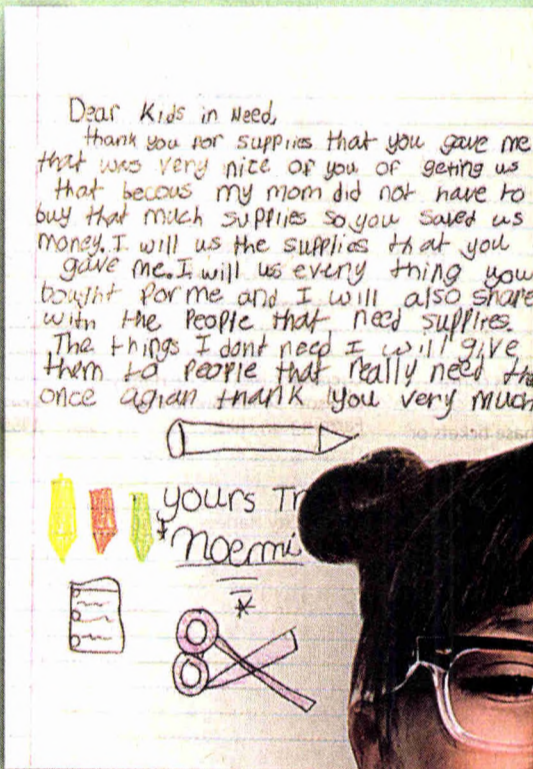 Dear Kids in Need,
thank you for supplies that you gave me
that was very nice of you of geting us
that becous my mom did not have to
buy that much supplies so you saved us
money. I will us the supplies that you
gave me. I will us every thing you
bought for me and I will also share
with the people that need supplies.
The things I dont need I will give
them to people that really need the
once agian thank you very much
yours Tr
Noemi